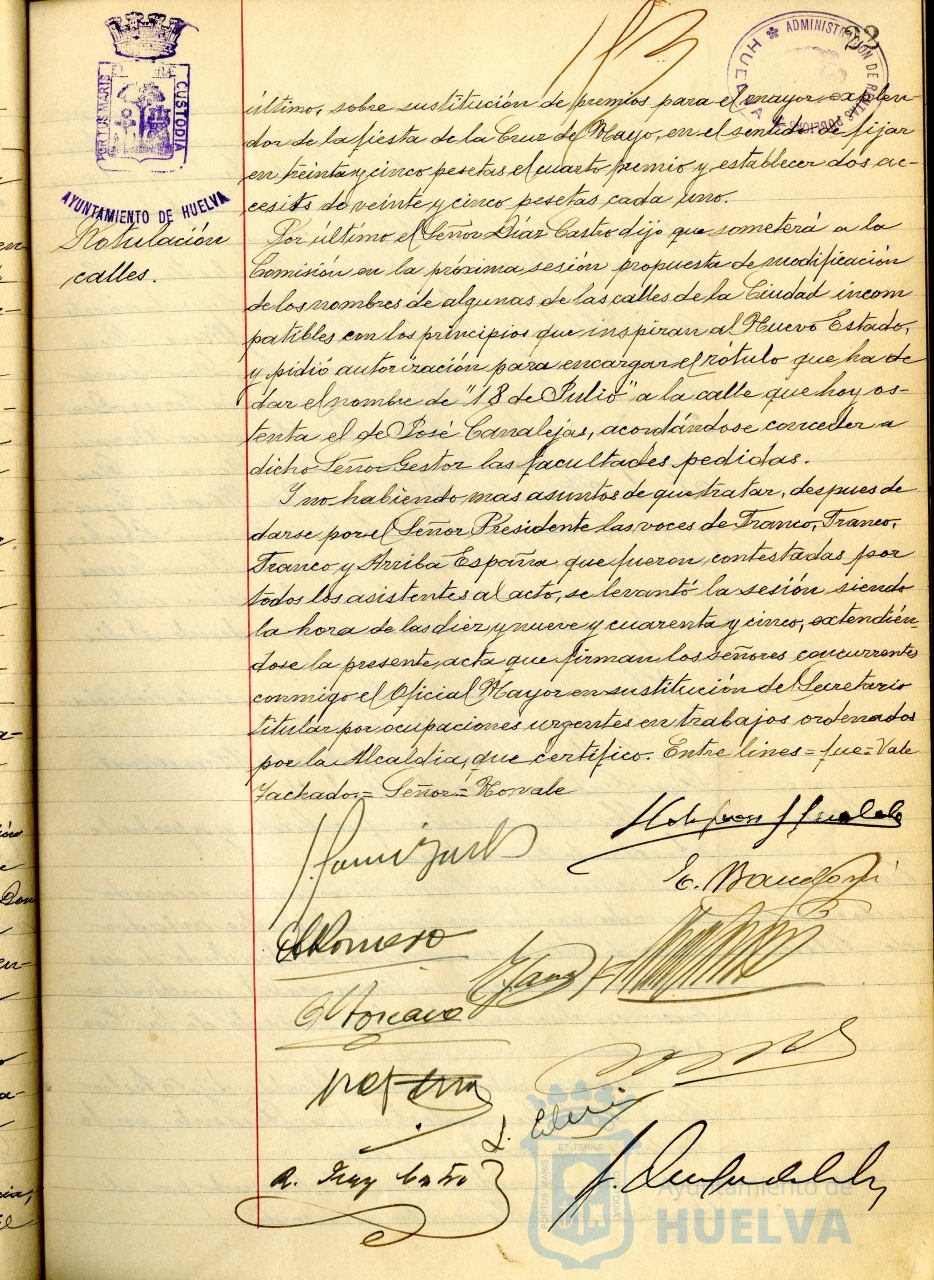 33
PORTUS MARIS
CUSTODIA
AYUNTAMIENTO DE HUELVA
ADMINISTRACIÓN DE RENTAS
HUELVA
último, sobre sustitución de premios para el mayor explen-
dor de la fiesta de la Cruz de Mayo, en el sentido de fijar
en treinta y cinco pesetas el cuarto premio y establecer dos ac-
cesits de veinte y cinco pesetas cada uno.
Rotulación
calles.
Por último el Señor Díaz Castro dijo que someterá a la
Comisión en la próxima sesión propuesta de modificación
de los nombres de algunas de las calles de la Ciudad incom
patibles con los principios que inspiran al Nuevo Estado,
y pidió autorización para encargar el rótulo que ha de
dar el nombre de "18 de Julio" a la calle que hoy os-
tenta el de José Canalejas, acordándose conceder a
dicho Señor Gestor las facultades pedidas.
Y no habiendo mas asuntos de que tratar, despues de
darse por el Señor Presidente las voces de Franco, Franco,
Franco y Arriba España que fueron contestadas por
todos los asistentes al acto, se levantó la sesión siendo
la hora de las diez y nueve y cuarenta y cinco, extendién-
dose la presente acta que firman los señores concurrentes
conmigo el Oficial Mayor en sustitución del Secretario
titular por ocupaciones urgentes en trabajos ordenados
por la Alcaldía, que certifico. Entre lines = fue = Vale
Tachado = Señor = No vale
Romero
Ayuntamiento de
HUELVA